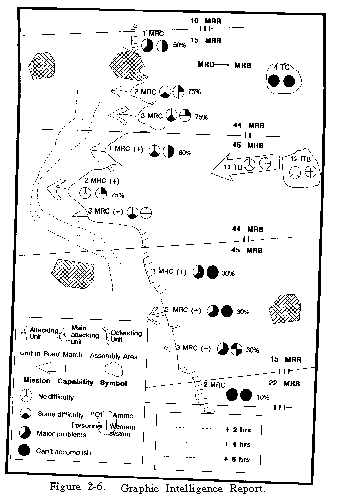 10 MRR
III
1 MRC
15 MRR
50%
MRD MRR
1 TC
2 MRC 75%
3 MRC 75%
44 MRB
45 MRB
1 MRC (+) 60%
12 ITB
2 MRC (+)
75%
3 MRC (+)
44 MRB
45 MRB
1 MRC (+) 30%
2 MRC (+) 30%
3 MRC (+) 30%
15 MRR
III
22 MRR
2 MRC
10%
III
Attacking Unit
Main attacking Unit
Defending Unit
Unit in Road March
Assembly Area
Mission Capability Symbol
No difficulty
Some difficulty
Ammo
Personnel
Weapon system
Major problems
Can't accomplish
+ 2 hrs
+ 4 hrs
+ 6 hrs
Figure 2-6. Graphic Intelligence Report.